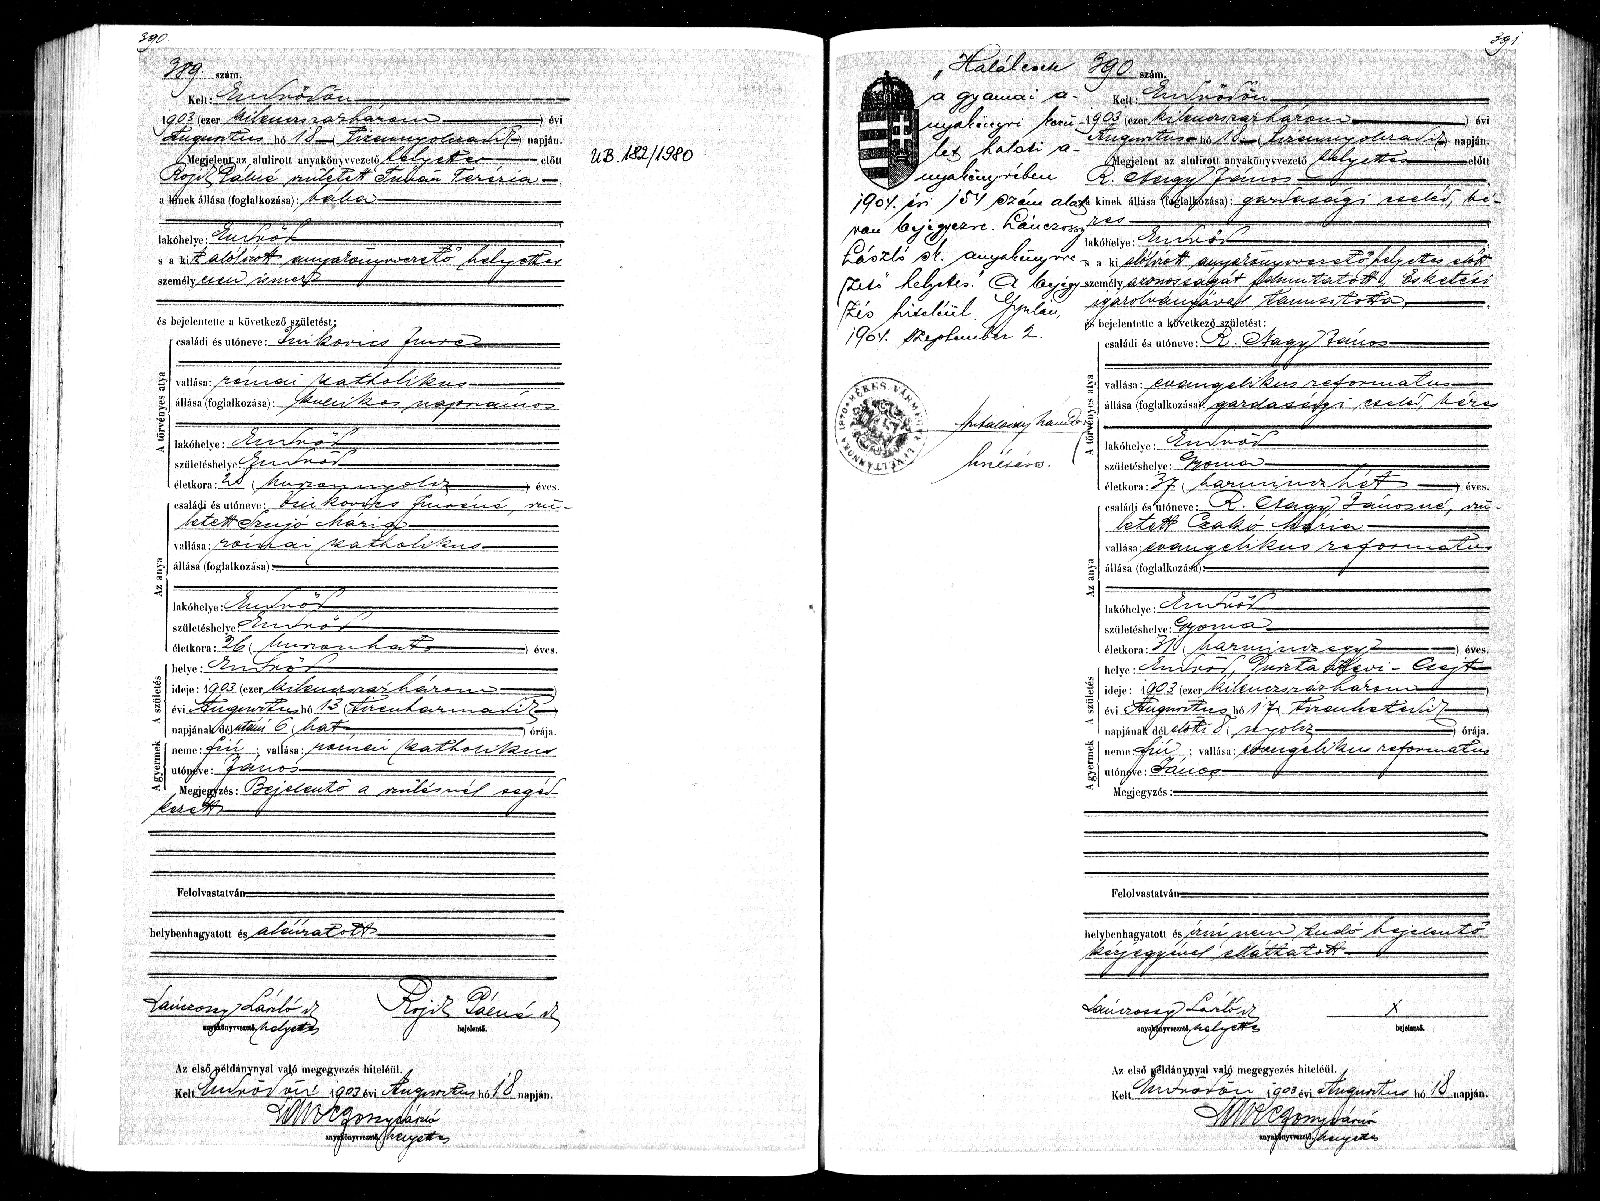 390
389. szám.
Kelt: Endrődön
1903 (ezer kilencszázhárom) évi
Augusztus hó 18 (tizennyolcadik) napján.
Megjelent az alulirott anyakönyvvezető helyettes előtt
született Terézia
a kinek állása (foglalkozása): bába
lakóhelye: Endrőd
s a kit alulirott anyakönyvvezető helyettes
személyesen ismert
és bejelentette a következő születést:
A törvényes atya
családi és utóneve: Imre
vallása: római katholikus
állása (foglalkozása): napszámos
lakóhelye: Endrőd
születéshelye: Endrőd
életkora: 28 (huszonnyolc) éves.
Az anya
családi és utóneve: Imréné, szü-
letett Mária
vallása: római katholikus
állása (foglalkozása):
lakóhelye: Endrőd
születéshelye: Endrőd
életkora: 26 (huszonhat) éves.
A születés
helye: Endrőd
ideje: 1903 (ezer kilencszázhárom)
évi Augusztus hó 13 (tizenharmadik)
napjának dél utáni 6 (hat) órája.
A gyermek
neme: fiú; vallása: római katholikus
utóneve: János
Megjegyzés: Bejelentő a szülésnél segéd-
kezett
Felolvastatván
helybenhagyatott és aláiratott
Lánczossy László sk
anyakönyvvezető helyettes
bejelentő.
Az első példánynyal való megegyezés hiteléül.
Kelt Endrődön 1903 évi Augusztus hó 18 napján.
anyakönyvvezető helyettes
UB. 182/1980
391
„Halálesete
a gyomai a-
nyakönyvi kerü-
let halotti a-
nyakönyvében
1904. évi 154 szám alatt
van bejegyezve. Lánczossy
László sk. anyakönyvve-
zető helyettes." A bejegy-
zés hiteléül. Gyulán,
1904. szeptember 2.
BÉKES VÁRMEGYE LEVÉLTÁRNOKA 1870
390 szám.
Kelt: Endrődön
1903 (ezer kilencszázhárom) évi
Augusztus hó 18 (tizennyolcadik) napján.
Megjelent az alulirott anyakönyvvezető helyettes előtt
R. Nagy János
a kinek állása (foglalkozása): gazdasági cseléd, bé-
res
lakóhelye: Endrőd
s a ki alulirott anyakönyvvezető helyettes előtt
személyazonosságát felmutatott Esketési
igazolványával tanusitotta,
és bejelentette a következő születést:
A törvényes atya
családi és utóneve: R. Nagy János
vallása: evangelikus reformatus
állása (foglalkozása): gazdasági cseléd, béres
lakóhelye: Endrőd
születéshelye: Gyoma
életkora: 37 (harminczhét) éves.
Az anya
családi és utóneve: R. Nagy Jánosné, szü-
letett Csakó Mária
vallása: evangelikus reformatus
állása (foglalkozása):
lakóhelye: Endrőd
születéshelye: Gyoma
életkora: 31 (harminczegy) éves.
A születés
helye: Endrőd, Puszta
ideje: 1903 (ezer kilencszázhárom)
évi Augusztus hó 17 (tizenhetedik)
napjának dél előtti 8 (nyolc) órája.
A gyermek
neme: fiú; vallása: evangelikus reformatus
utóneve: János
Megjegyzés:
Felolvastatván
helybenhagyatott és irni nem tudó bejelentő
kézjegyével elláttatott
Lánczossy László sk
anyakönyvvezető helyettes
X
bejelentő.
Az első példánynyal való megegyezés hiteléül.
Kelt Endrődön 1903 évi Augusztus hó 18 napján.
anyakönyvvezető helyettes